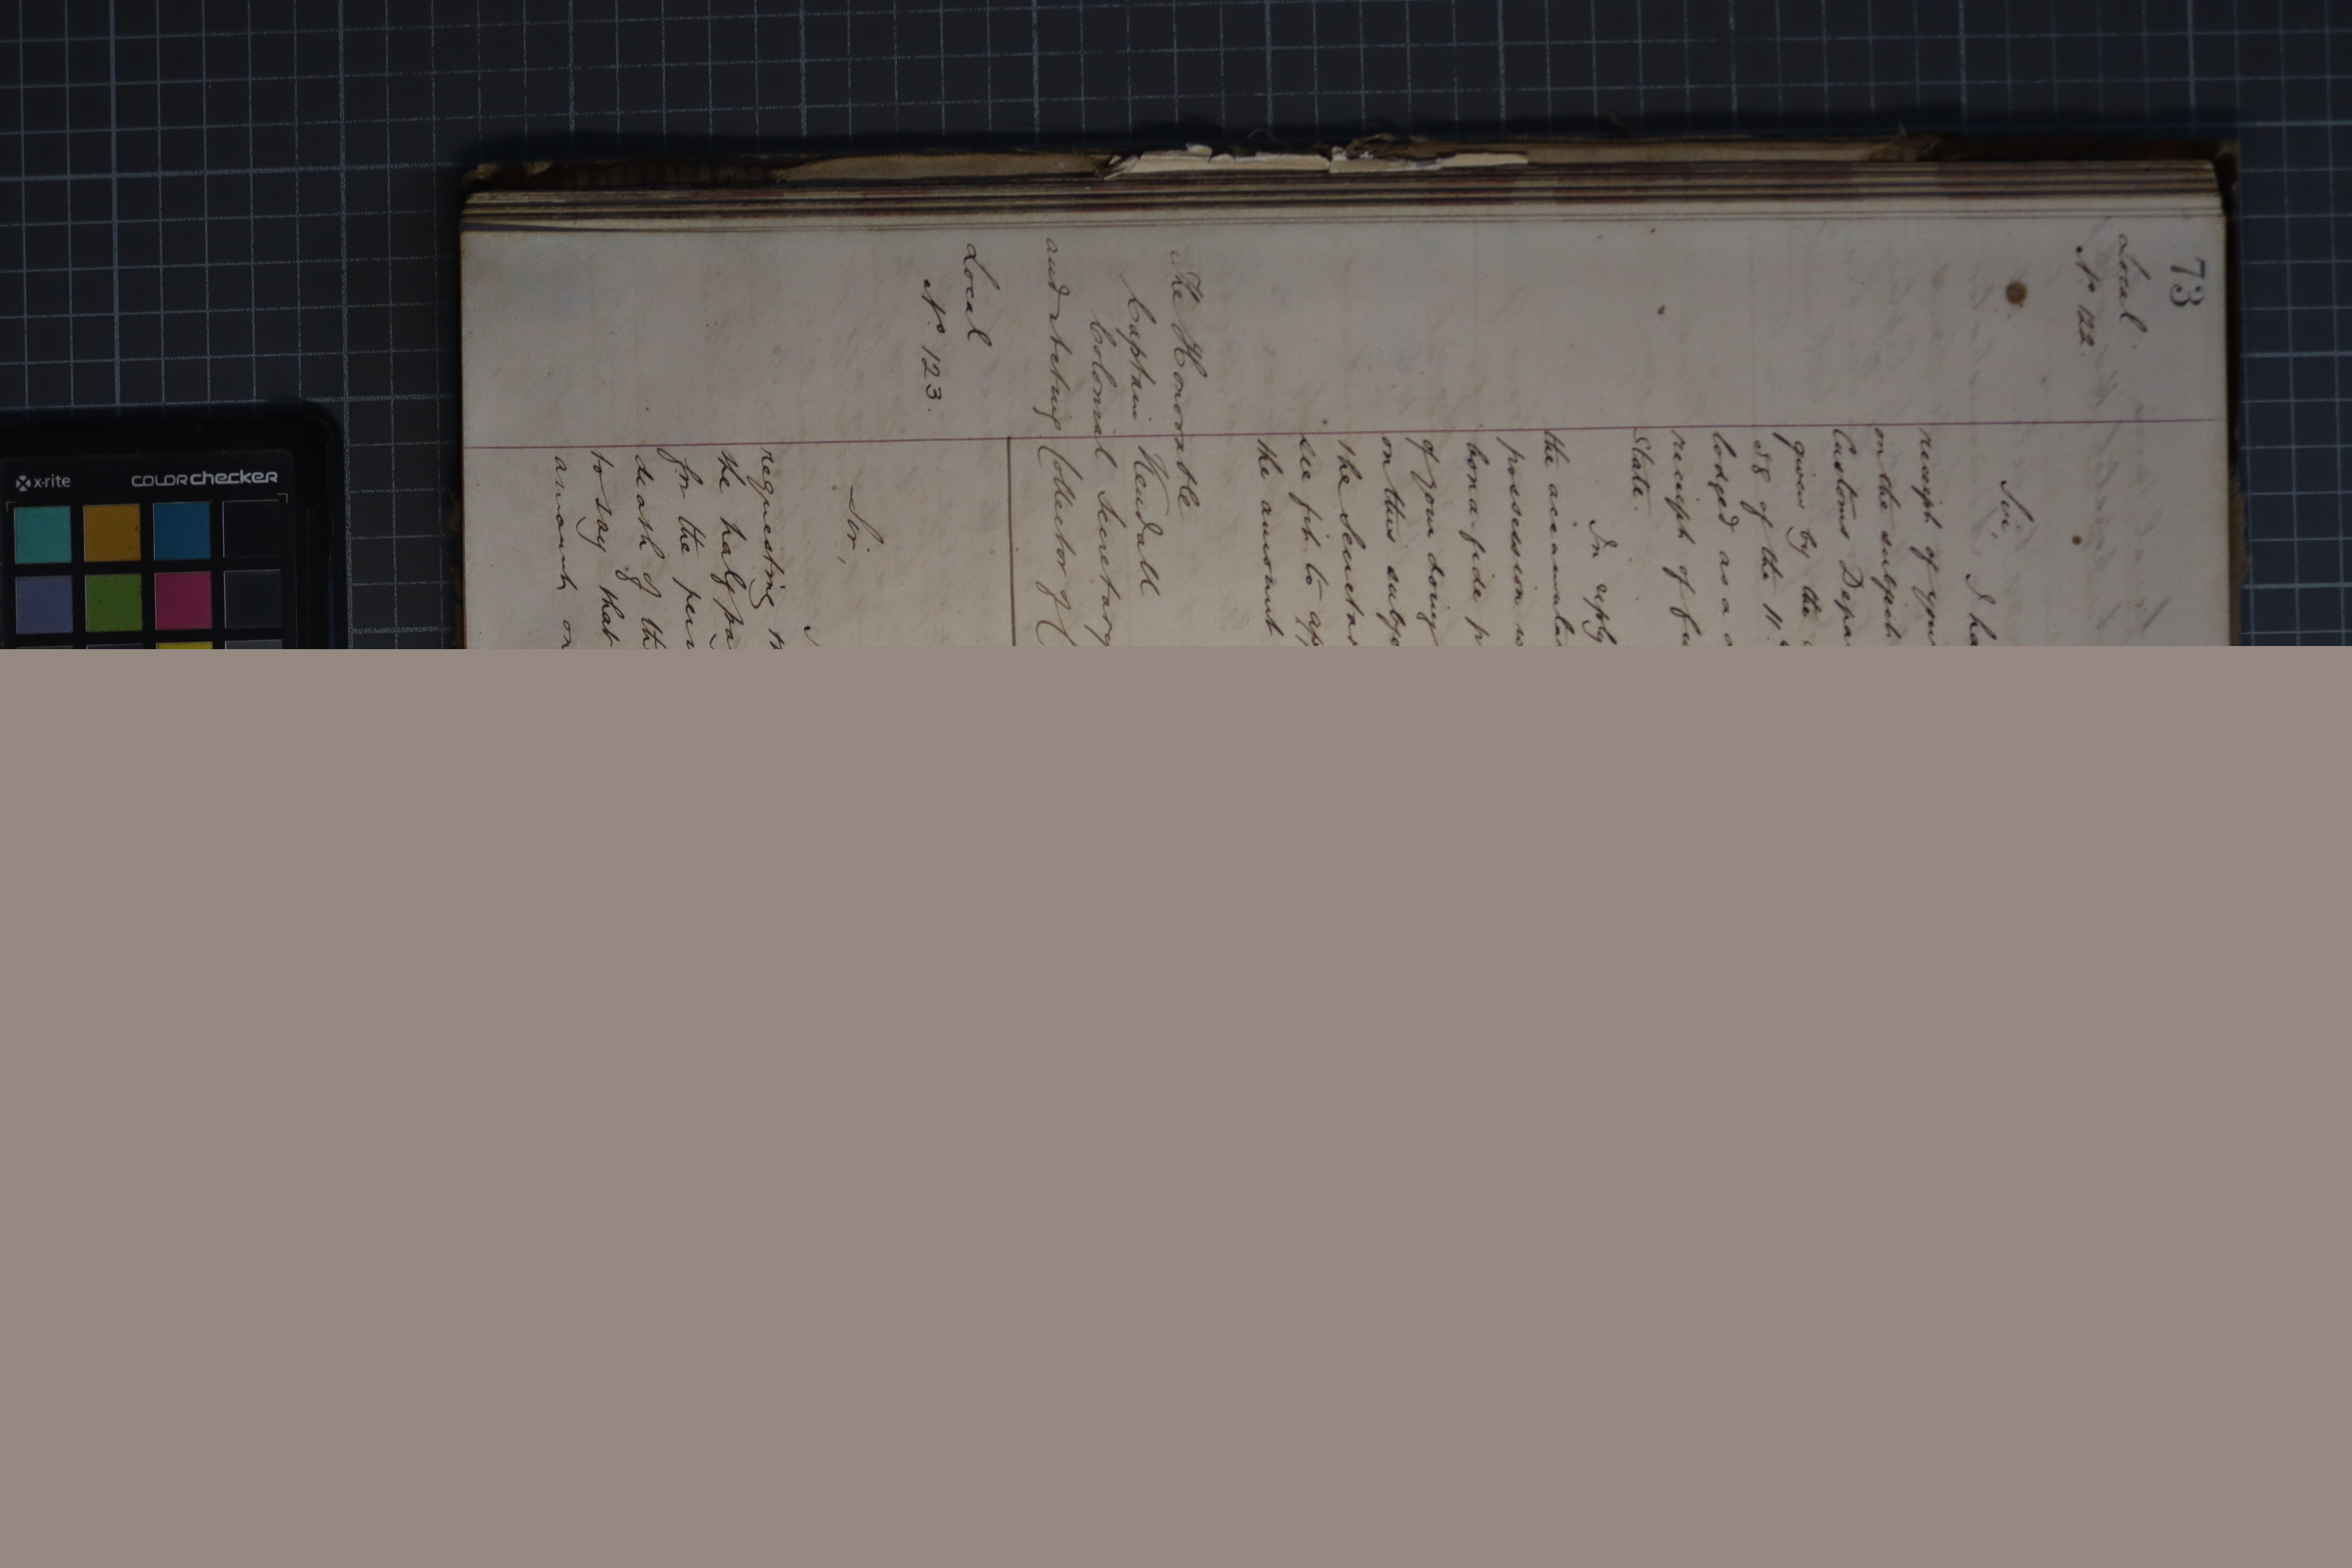 73
Local
No. 122.
Sir,
I ha
receipt of your
on the subject
Customs Depa
given by the
58 of the 11th
lodged as a
receipt of
State.
In reply
the accumula
possession
bona-fide p
of your doing
on this subje
the Secretar
see fit to ap
the amount
The Honorable
Captain Kendall
Colonial Secretary
and acting Collector of C
Local
No. 123.
Sir,
requesting
the half pa
for the peri
death of th
to say that
amount on
x-rite
COLORchecker